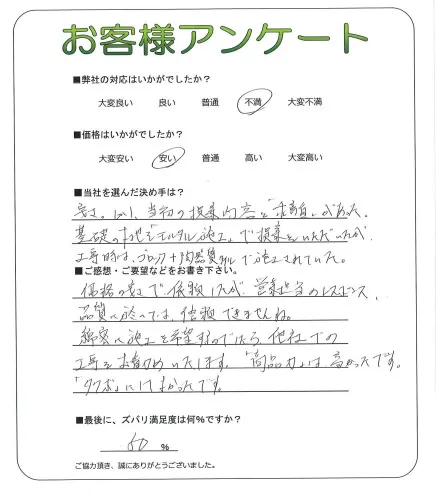 お客様アンケート
■弊社の対応はいかがでしたか？
大変良い 良い 普通 不満 大変不満
■価格はいかがでしたか？
大変安い 安い 普通 高い 大変高い
■当社を選んだ決め手は？
安さ。しかし、当初の提案内容と「手直し」があった。
基礎の下地を「モルタル施工」で提案をいただいたが、
工事時は、ブロック＋で施工されていた。
■ご感想・ご要望などをお書き下さい。
価格の安さで依頼したが、営業担当のレスポンス、
品質に於いては、信頼できませんね。
綺麗に施工を希望するのでしたら他社での
工事をお勧めいたします。「商品力」は高かったです。
「タクボ」にしてよかったです。
■最後に、ズバリ満足度は何％ですか？
50 ％
ご協力頂き、誠にありがとうございました。